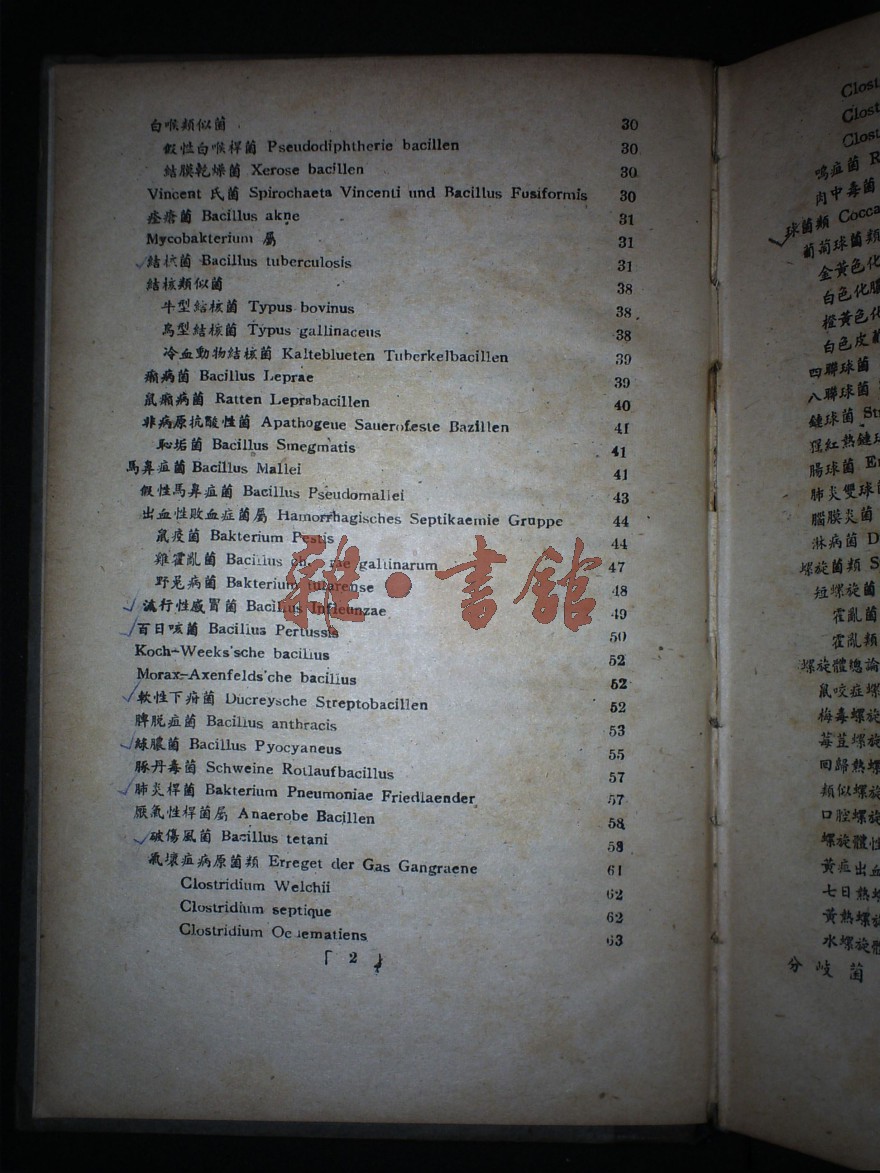 白喉類似菌 30
假性白喉桿菌 Pseudodiphtherie bacillen 30
結膜乾燥菌 Xerose bacillen 30
Vincent 氏菌 Spirochaeta Vincenti und Bacillus Fusiformis 30
痤瘡菌 Bacillus akne 31
Mycobakterium 屬 31
結核菌 Bacillus tuberculosis 31
結核類似菌 38
牛型結核菌 Typus bovinus 38
鳥型結核菌 Typus gallinaceus 38
冷血動物結核菌 Kalteblueten Tuberkelbacillen 39
癩病菌 Bacillus Leprae 39
鼠癩病菌 Ratten Leprabacillen 40
非病原抗酸性菌 Apathogeue Sauerofeste Bazillen 41
恥垢菌 Bacillus Smegmatis 41
馬鼻疽菌 Bacillus Mallei 41
假性馬鼻疽菌 Bacillus Pseudomallei 43
出血性敗血症菌屬 Hamorrhagisches Septikaemie Gruppe 44
鼠疫菌 Bakterium Pestis 44
雞霍亂菌 Bacillus gallinarum 47
野兎病菌 Bakterium tularense 48
流行性感冒菌 Bacillus Infleunzae 49
百日咳菌 Bacillus Pertussis 50
Koch-Weeks'sche bacillus 52
Morax-Axenfelds'che bacillus 52
軟性下疳菌 Ducreysche Streptobacillen 52
脾脱疽菌 Bacillus anthracis 53
綠膿菌 Bacillus Pyocyaneus 55
豚丹毒菌 Schweine Rotlaufbacillus 57
肺炎桿菌 Bakterium Pneumoniae Friedlaender 57
厭氣性桿菌屬 Anaerobe Bacillen 58
破傷風菌 Bacillus tetani 58
氣壞疽病原菌類 Erreget der Gas Gangraene 61
Clostridium Welchii 62
Clostridium septique 62
Clostridium Oedematiens 63
「 2 」
雜·書館
Clost
Clost
Clost
鳴疽菌 R
肉中毒菌
球菌類 Cocca
葡萄球菌類
金黃色化
白色化膿
橙黃色化
白色皮葡
四聯球菌
八聯球菌
鏈球菌 St
猩紅熱鏈球
腸球菌 E
肺炎雙球菌
腦膜炎菌
淋病菌 D
螺旋菌類 S
短螺旋菌
霍亂菌
霍亂類
螺旋體總論
鼠咬症螺
梅毒螺旋
莓荳螺旋
回歸熱螺
類似螺旋
口腔螺旋
螺旋體性
黃疸出血
七日熱螺
黃熱螺旋
水螺旋體
分歧菌